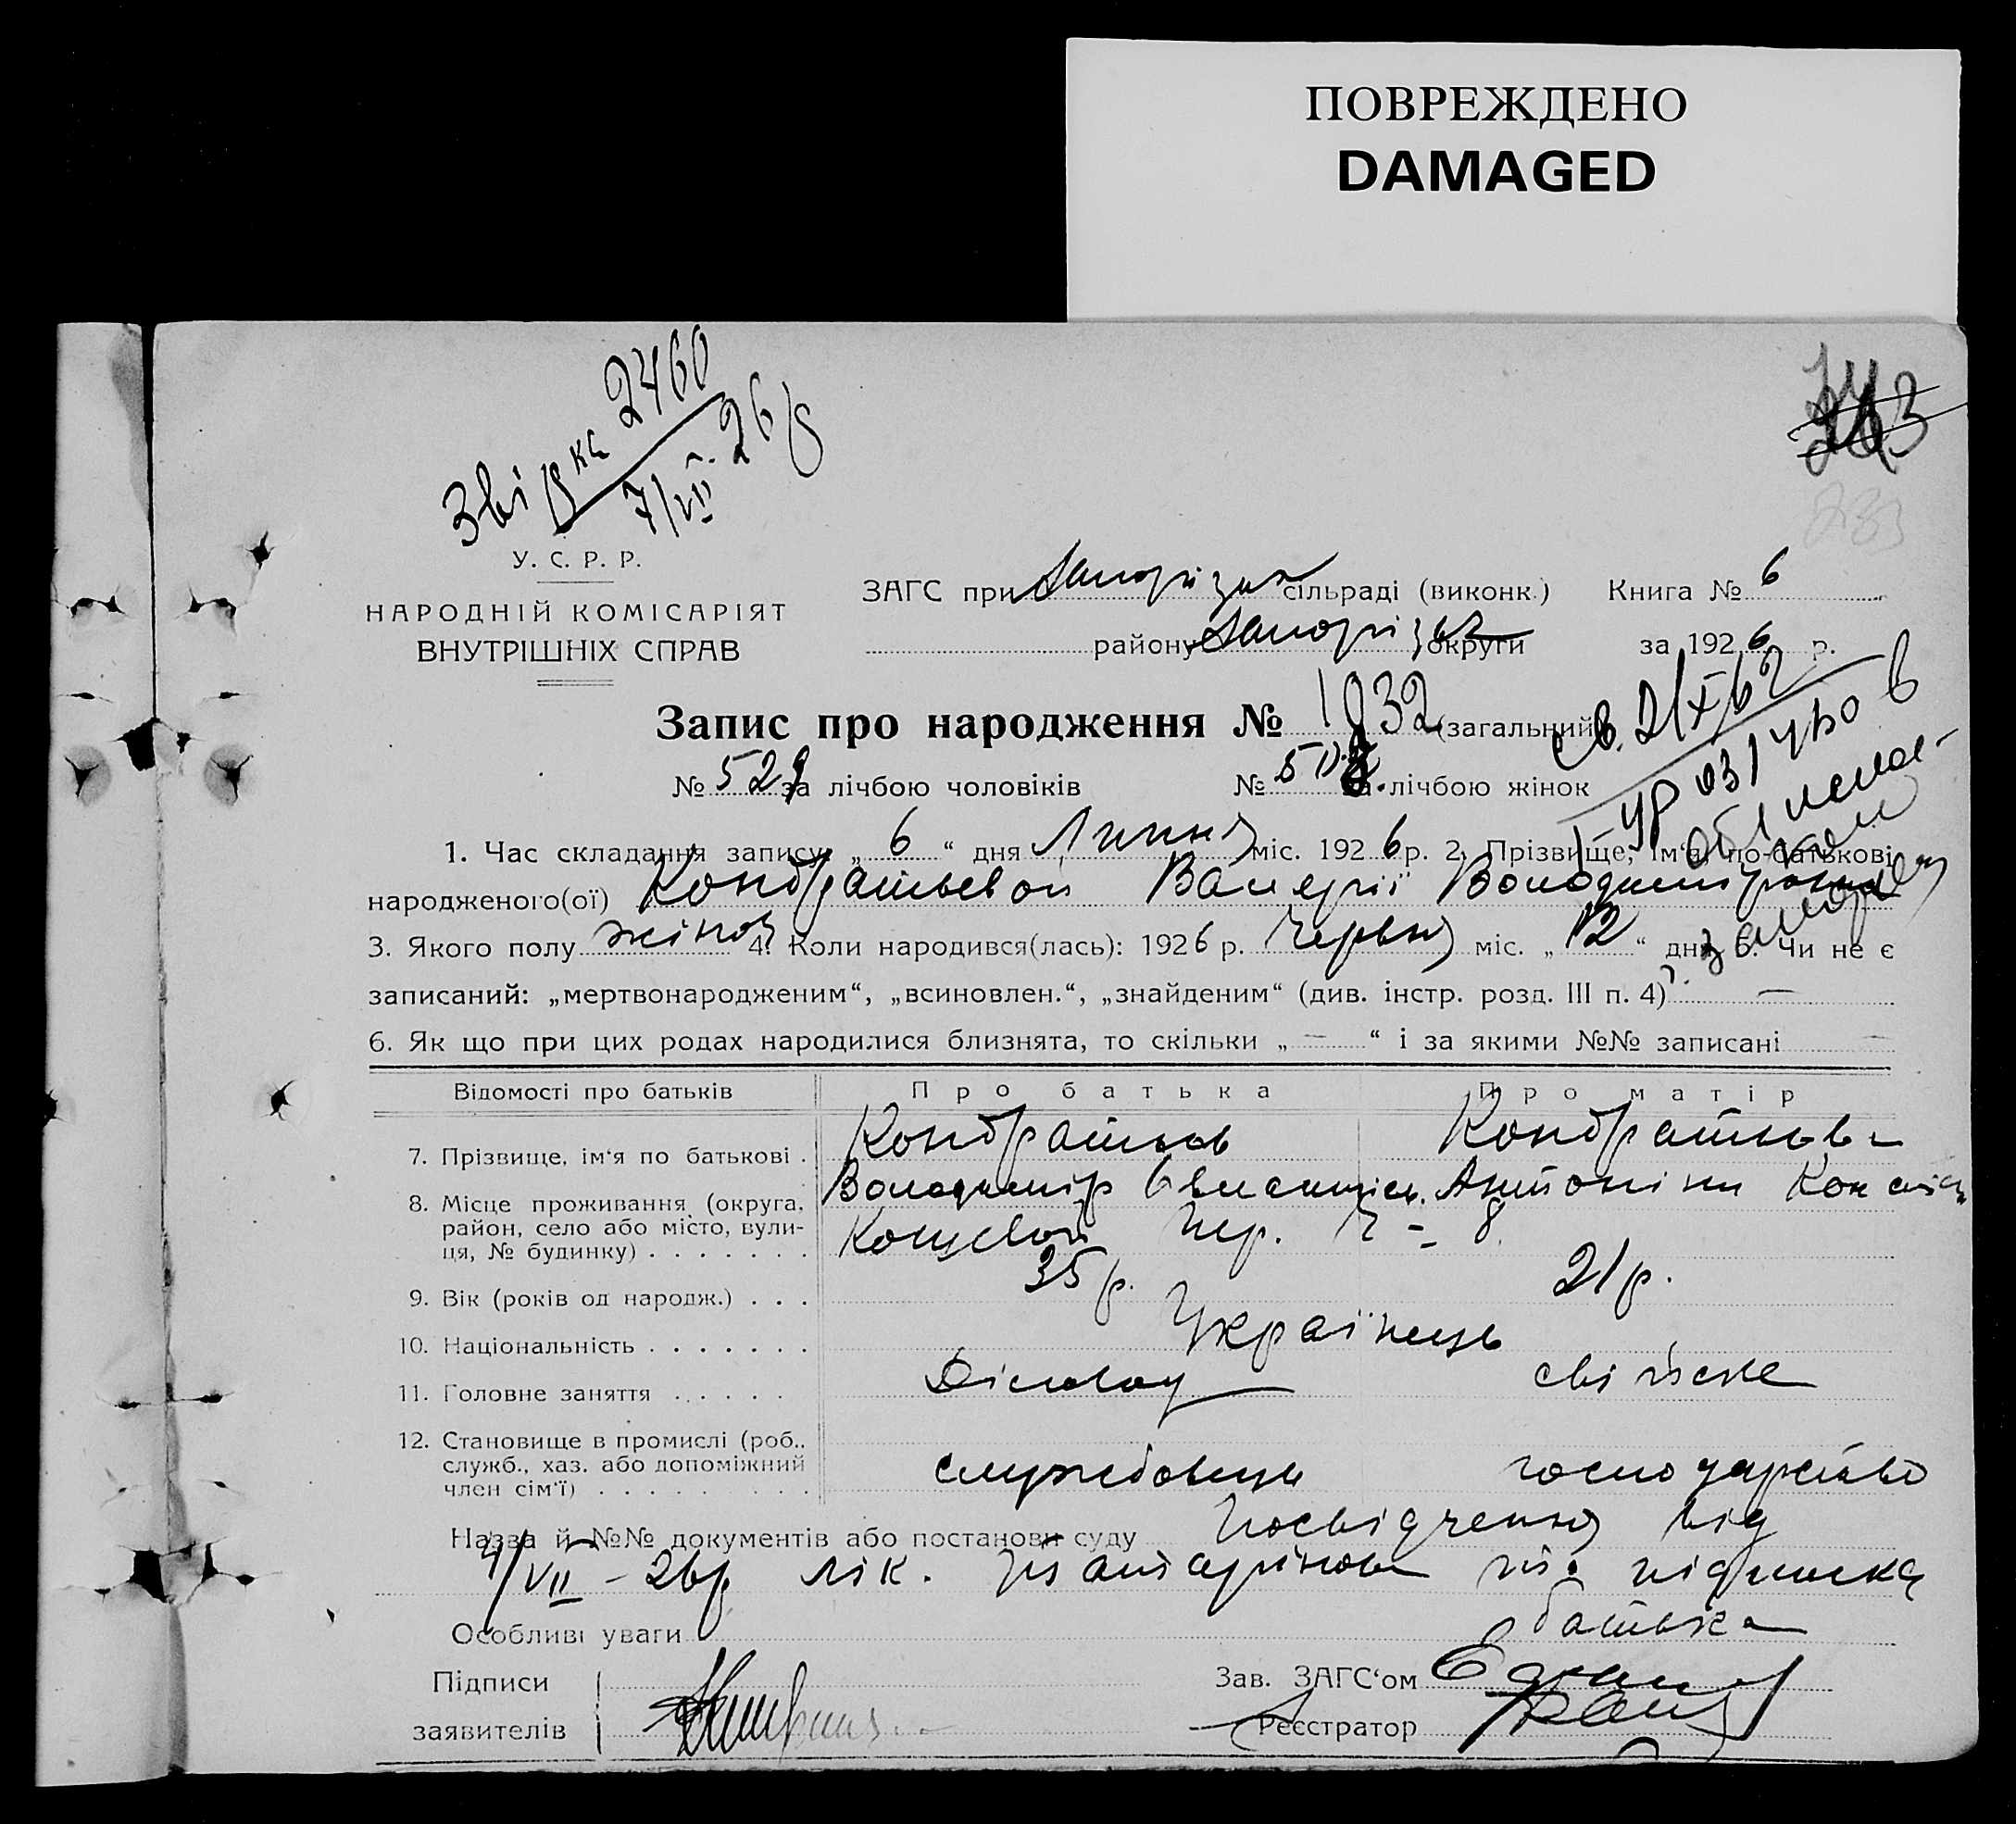 ПОВРЕЖДЕНО
DAMAGED
Звірка 2460
7/VII 26 р
У. С. Р. Р.
НАРОДНІЙ КОМІСАРІЯТ
ВНУТРІШНІХ СПРАВ
ЗАГС при Запорізьк сільраді (виконк.) Книга № 6
району Запорізьк округи за 1926 р.
Запис про народження № 1032 (загальний
св. 21/X/62
№ 529 за лічбою чоловіків № за лічбою жінок
1. Час складання запису „ 6 “ дня Липня міс. 1926 р. 2. Прізвище, ім‘я, по-батькові
народженого(ої) Кондратьевой Валерії Володиміровна
3. Якого полу жіноч 4. Коли народився(лась): 1926 р. Червня міс. „ 12 “ дня 5. Чи не є
записаний: „мертвонародженим“, „всиновлен.“, „знайденим“ (див. інстр. розд. III п. 4) —
6. Як що при цих родах народилися близнята, то скільки „ — “ і за якими №№ записані —
Відомості про батьків Про батька Про матір
7. Прізвище, ім‘я по батькові . Кондратьев Кондратьева
Володимір Антоніна
8. Місце проживання (округа, район, село або місто, вулиця, № будинку) . . . . . . . пер. 8
9. Вік (років од народж.) . . . 35 р. 21 р.
10. Національність . . . . . . . Українець
11. Головне заняття . . . . . Діловод свійське
12. Становище в промислі (роб., служб., хаз. або допоміжний член сім‘ї) . . . . . . . . службовець господарство
Назва й №№ документів або постанови суду Посвідчення від
4/VII – 26 р. лік. підписка
батька
Особливі уваги
Підписи
заявителів
Зав. ЗАГС‘ом
Реєстратор